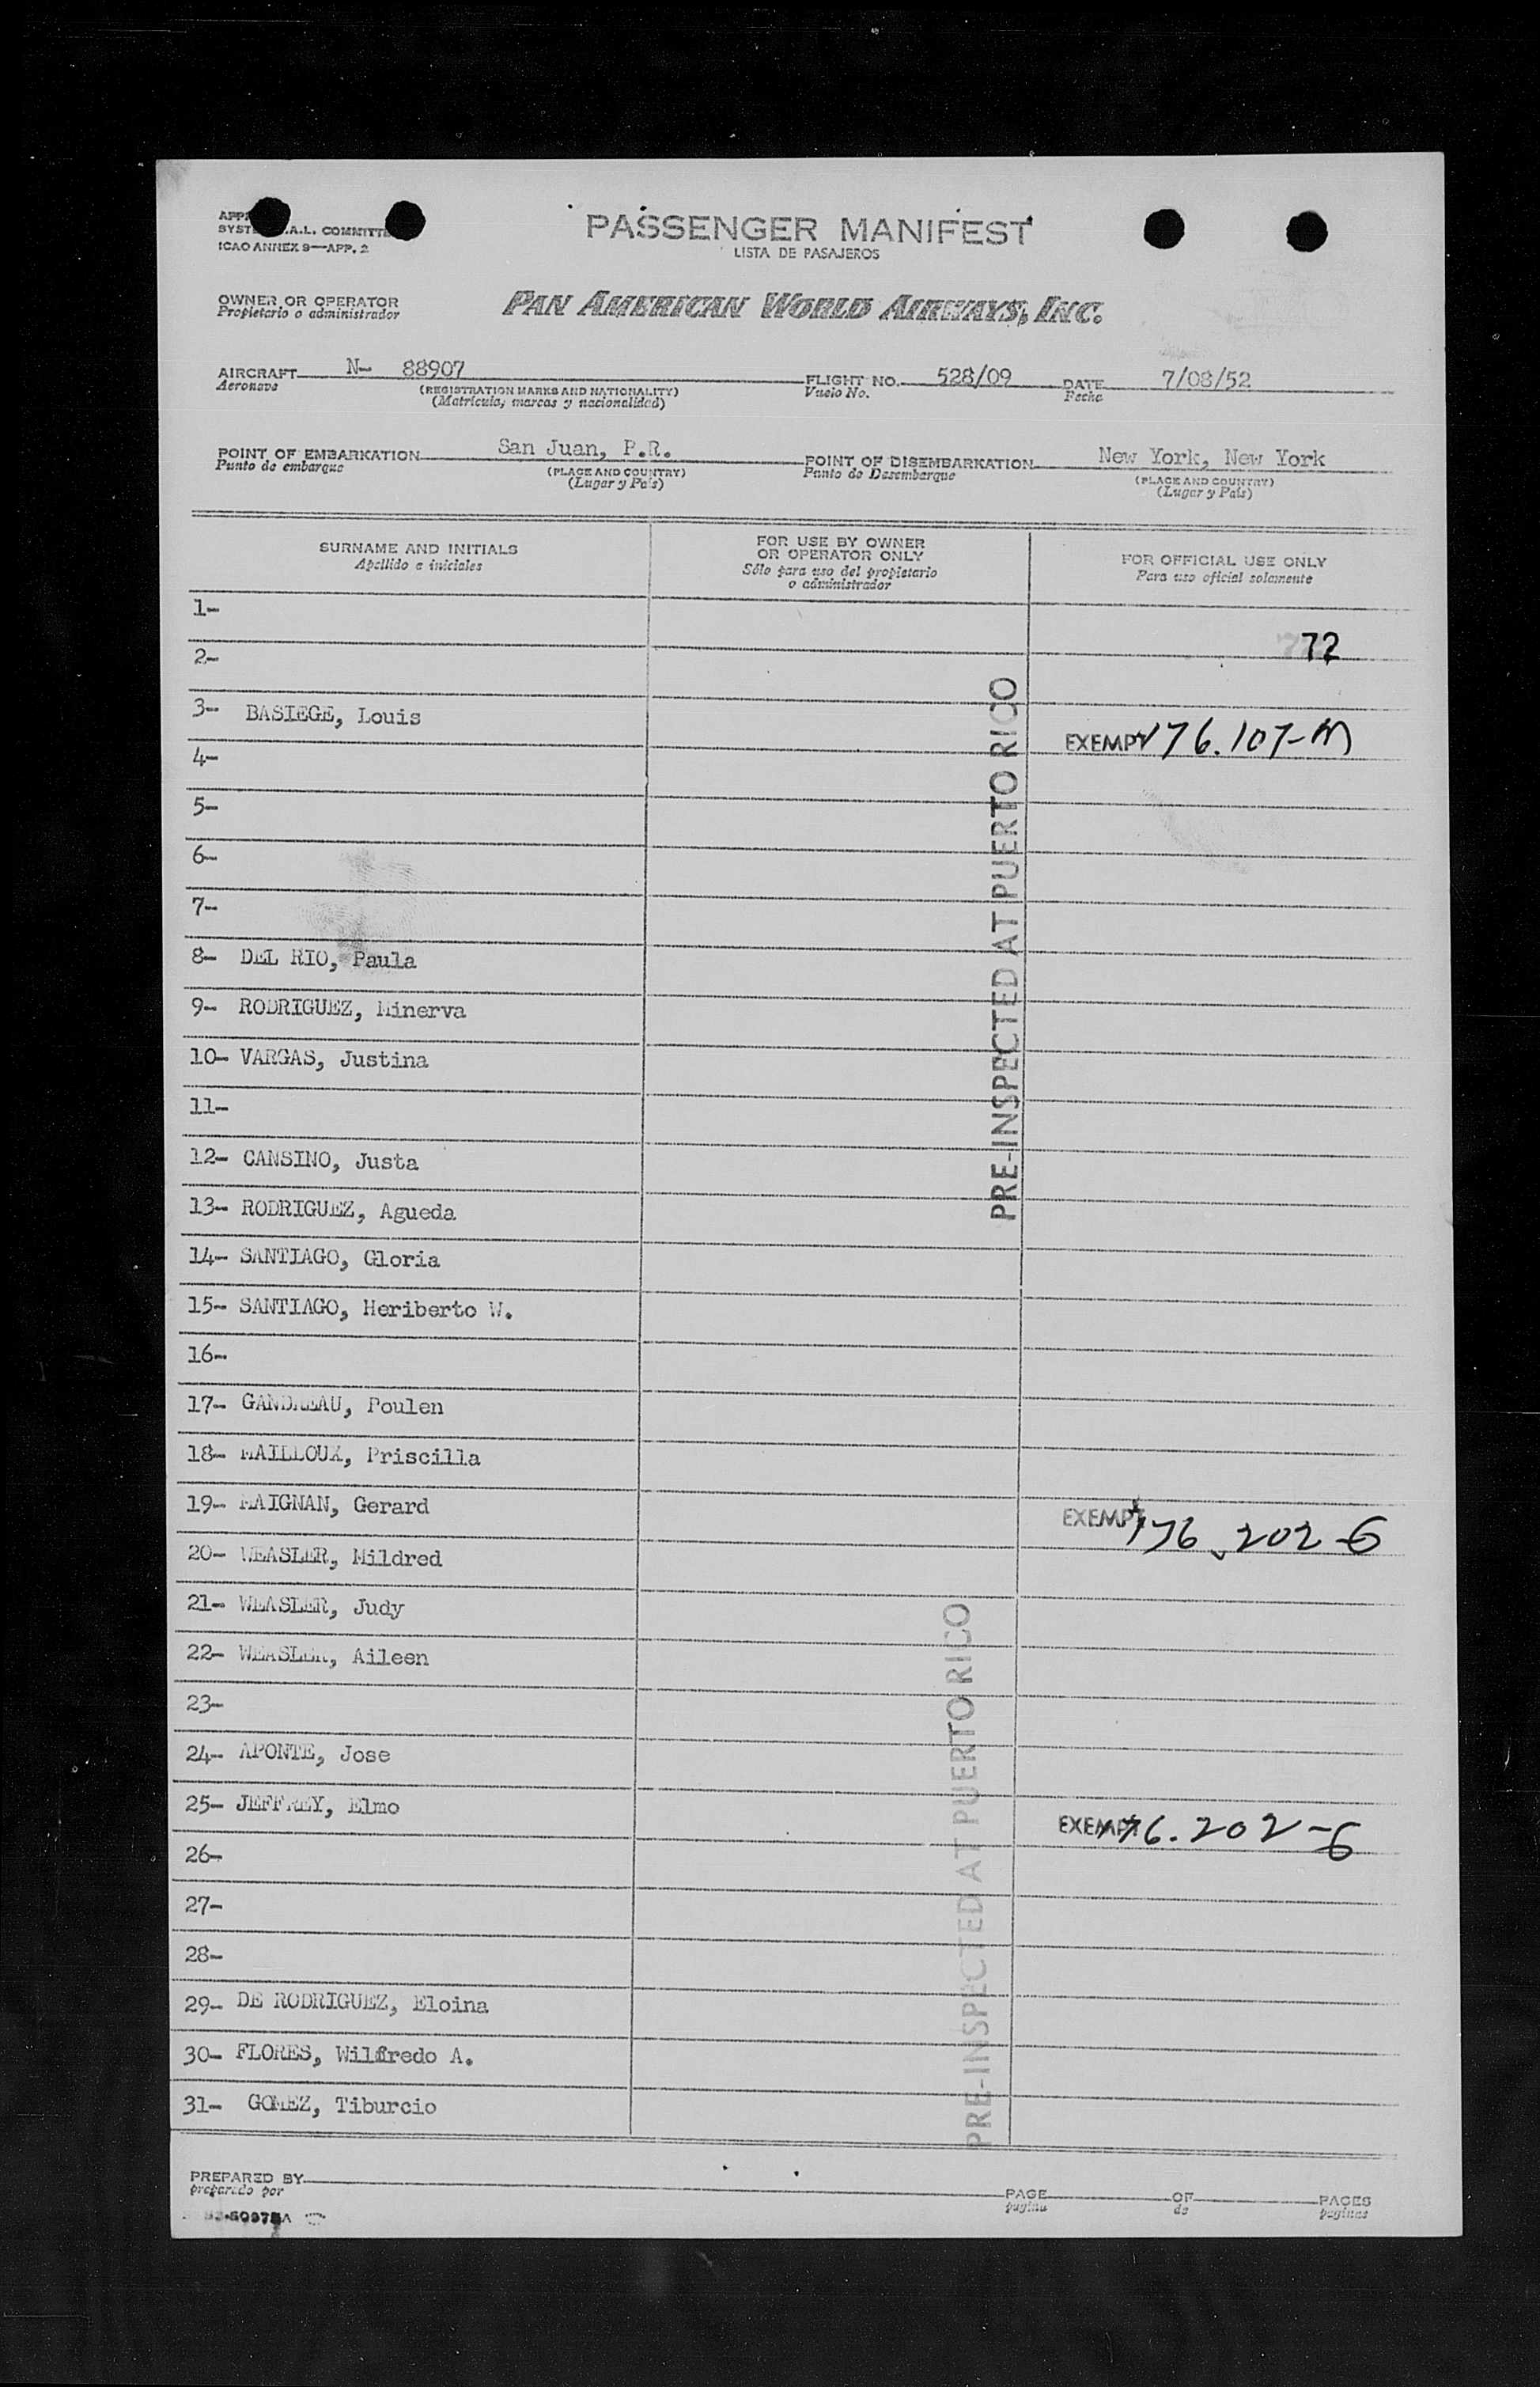 SYSTE .A.L. COMMITTE
ICAO ANNEX 9—APP. 2
PASSENGER MANIFEST
LISTA DE PASAJEROS
OWNER OR OPERATOR
Propietario o administrador
PAN AMERICAN WORLD AIRWAYS, INC.
AIRCRAFT N- 88907 FLIGHT NO. 528/09 DATE 7/08/52
Aeronave (REGISTRATION MARKS AND NATIONALITY) Vuelo No. Fecha
(Matricula, marcas y nacionalidad)
POINT OF EMBARKATION San Juan, P.R. POINT OF DISEMBARKATION New York, New York
Punto de embarque (PLACE AND COUNTRY) Punto de Desembarque (PLACE AND COUNTRY)
(Lugar y País) (Lugar y País)
SURNAME AND INITIALS
Apellido e iniciales
FOR USE BY OWNER
OR OPERATOR ONLY
Sólo para uso del propietario
o administrador
FOR OFFICIAL USE ONLY
Para uso oficial solamente
1-
72
2-
3- BASIEGE, Louis
EXEMPT 176.107-M
4-
5-
6-
7-
8- DEL RIO, Paula
9- RODRIGUEZ, Minerva
10- VARGAS, Justina
11-
12- CANSINO, Justa
13- RODRIGUEZ, Agueda
14- SANTIAGO, Gloria
15- SANTIAGO, Heriberto W.
16-
17- GANDREAU, Poulen
18- MAILLOUX, Priscilla
19- MAIGNAN, Gerard
EXEMPT 176.202-6
20- WEASLER, Mildred
21- WEASLER, Judy
22- WEASLER, Aileen
23-
24- APONTE, Jose
25- JEFFREY, Elmo
EXEMPT 176.202-6
26-
27-
28-
29- DE RODRIGUEZ, Eloina
30- FLORES, Wilfredo A.
31- GOMEZ, Tiburcio
PRE-INSPECTED AT PUERTO RICO
PRE-INSPECTED AT PUERTO RICO
PREPARED BY PAGE OF PAGES
preparado por pagina de paginas